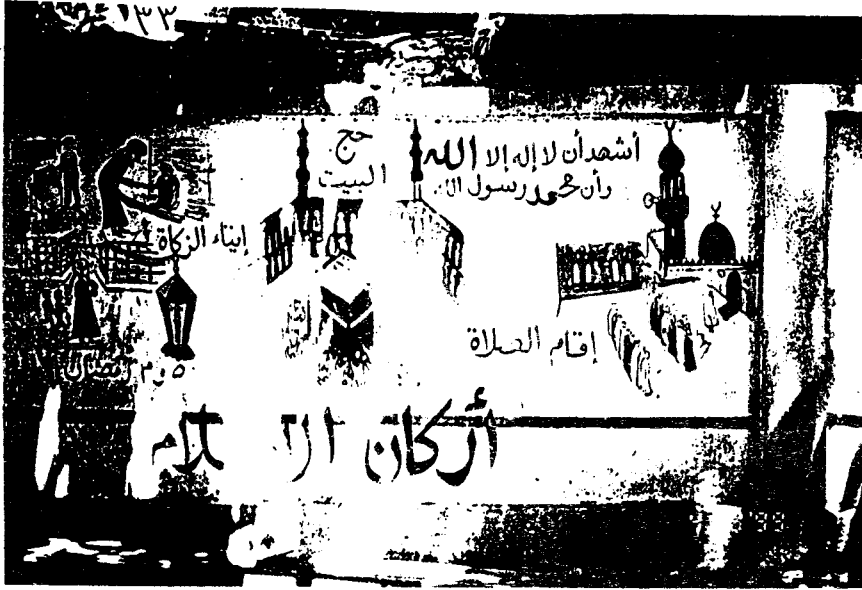 ١٣٣
أشهد أن لا إله إلا الله
وأن محمد رسول الله
حج
البيت
إيتاء الزكاة
إقام الصلاة
صوم رمضان
أركان الإسلام